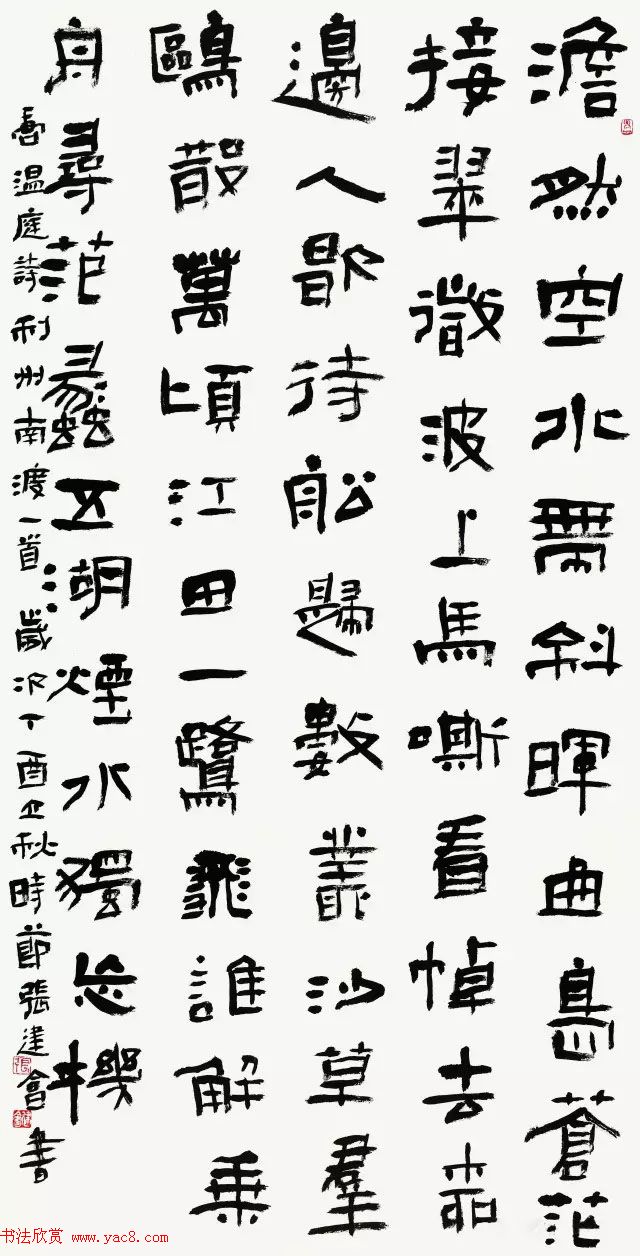 澹然空水帶斜暉曲島蒼茫
接翠微波上馬嘶看棹去柳
邊人歇待船歸數叢沙草羣
鷗散萬頃江田一鷺飛誰解乘
舟尋范蠡五湖煙水獨忘機
唐温庭詩利州南渡一首歲次丁酉正秋時節張建會書
书法欣赏 www.yac8.com